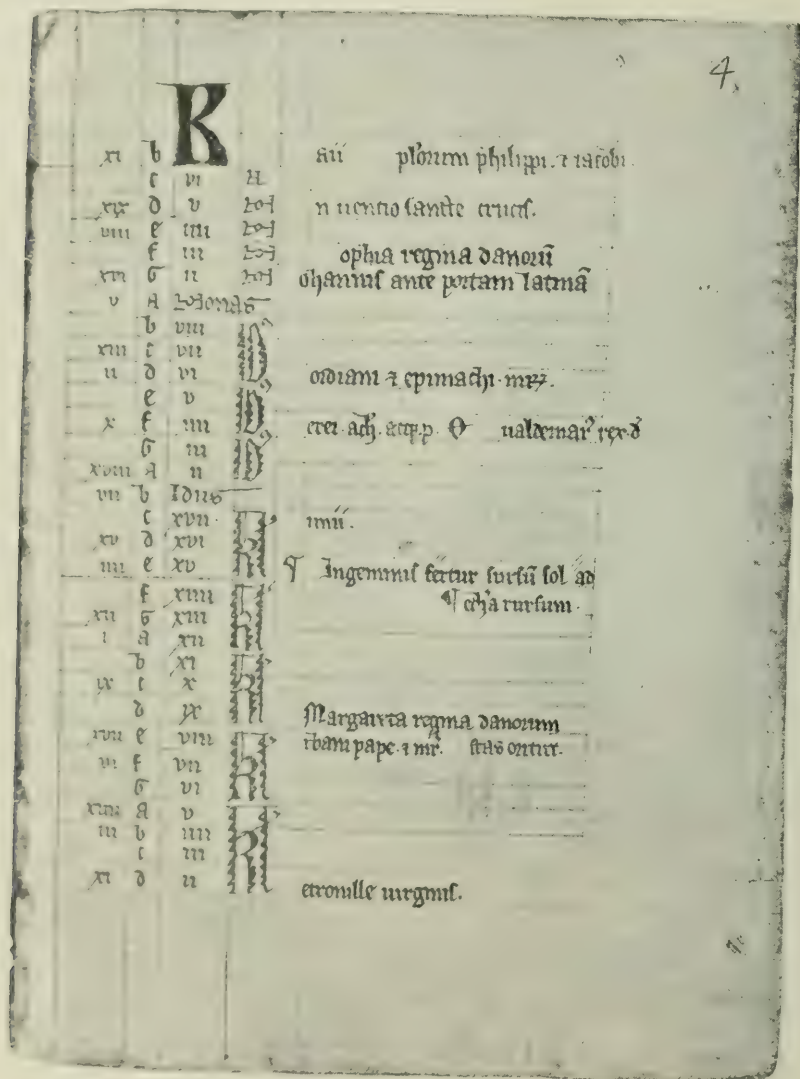 4
xi b K aii plorum philippi. ⁊ iacobi.
c vi N
xix d v Non nuentio sancte crucis.
viii e iiii Non
f iii Non ophia regina danorum
xvi G ii Non ohannis ante portam latinā
v A Nonas
b viii
xiii c vii Id
ii d vi ordiani ⁊ epimachi. mr̄.
e v Id
x f iiii erei achi. atqp.p O ualdemar' rex d
G iii Id
xviii A ii
vii b Idus
c xvii K imii.
xv d xvi
iiii e xv ¶ Ingeminis fertur sursū sol ad
f xiiii K ¶ rursum.
xii G xiii
i A xii
b xi K
ix c x
d ix Margareta regina danorum
xvii e viii K rbani pape. ⁊ mr̄. estas oritur.
vi f vii
G vi
xiiii A v K
iii b iiii
c iii
xi d ii etronille uirginis.